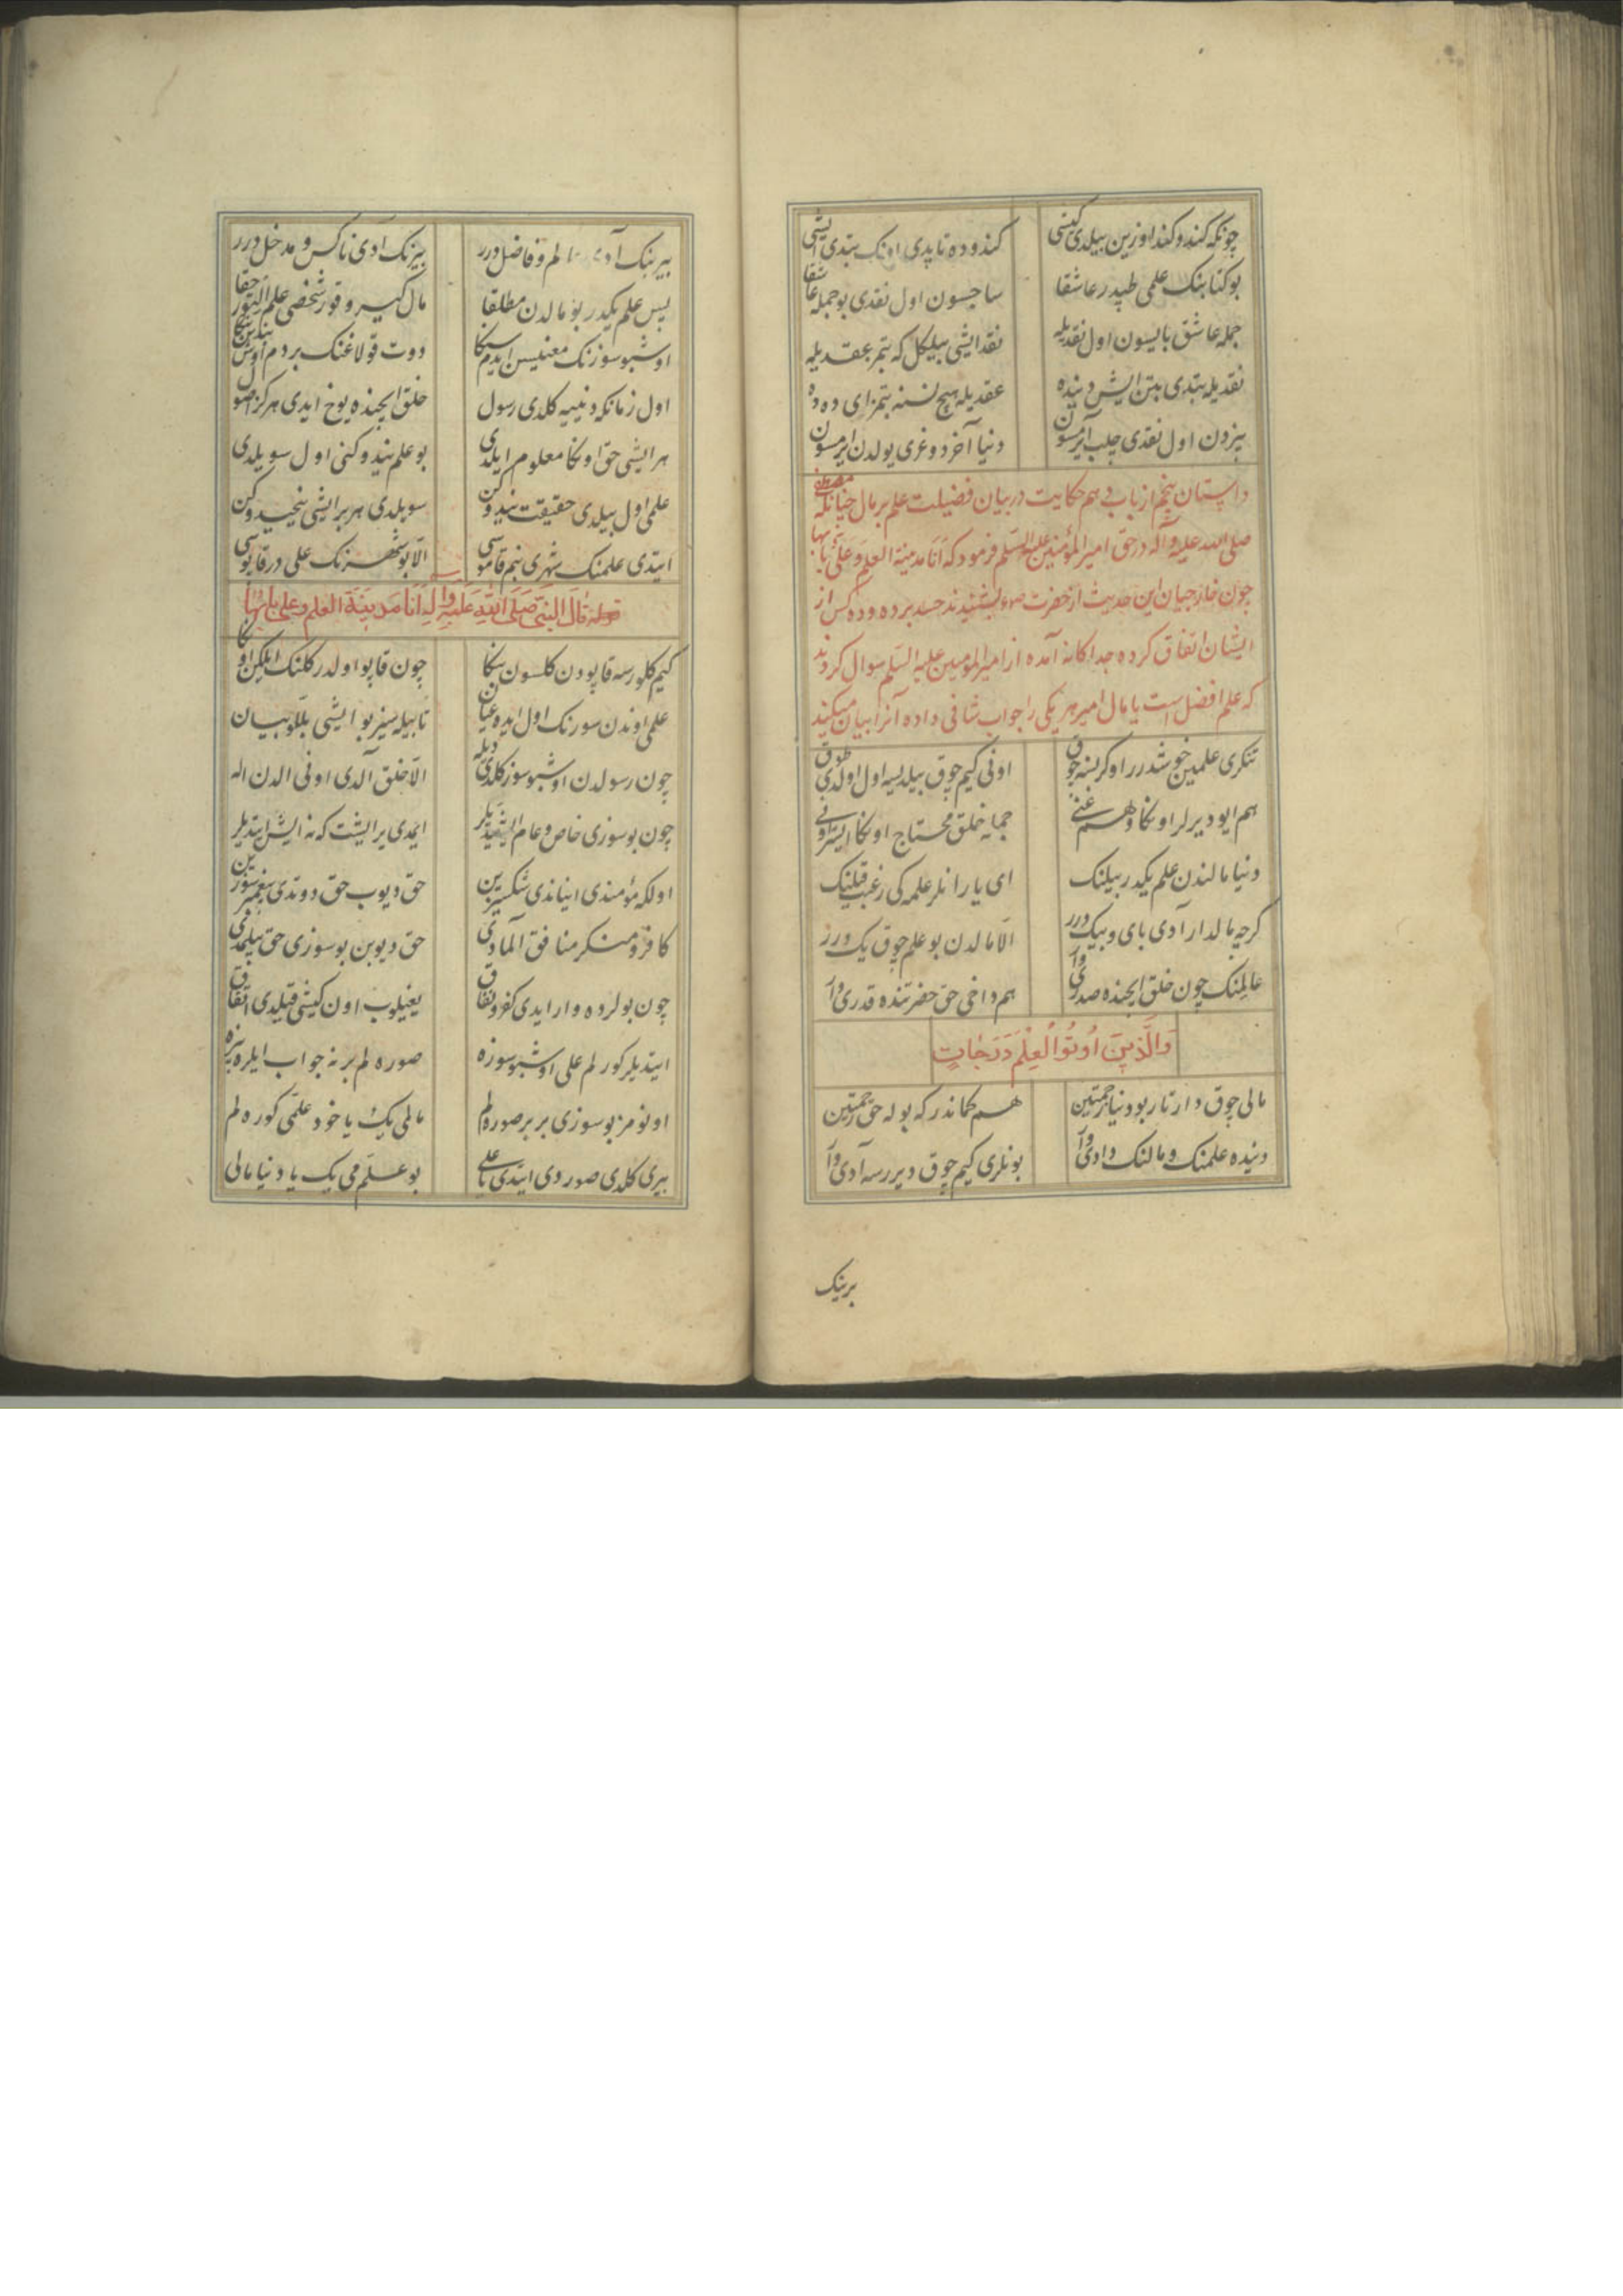 چونکه کندو کند اوزین بیلدی کیشی کندوده تاپدی اونک بتدی ایشی
بو کتابنک علمی طپدر عاشقا ساجسون اول نقدی بو جمله عاشقا
جمله عاشق بایسون اول نقدیله نقد ایشی بیلکل که بتمز عقدیله
نقدیله بتدی بتن ایش دینده عقدیله هیچ نسنه بتمز ای دده
بیزدن اول نقدی چلب آیرمسون دنیا آخر دوغری یولدن ایرمسون
داستان پنجم از باب دهم حکایت در بیان فضیلت علم بر مال چنانکه مصطفی
صلی الله علیه وآله در حق امیر المؤمنین علیه السلم فرمود که اَنَا مدینة العلم وَعَلیّ بابها
چون خارجیان این حدیث از حضرت بشنیدند حسد برده و ده کس از
ایشان اتفاق کرده جداکانه آمده از امیر المؤمنین علیه السلم سوال کردند
که علم افضل است یا مال امیر هر یکی را جواب شافی داده آنرا بیان میکند
تنکری علمین خوشدرر اوکرنسه چوق اونی کیم چوق بیلدیسه اول اولدی طوق
هم ایو دیرلر اونکا وهم غنی جمله خلق محتاج اونکا ایستر اونی
دنیا مالندن علم یکدر بیلنک ای یارانلر علمه کی رغبت قیلنک
کرچه مالدار آدی بای و بیک درر الّا مالدن بو علم چوق یک درر
عالمنک چون خلق ایچنده صدری وار هم داخی حق حضرتنده قدری وار
وَالَّذِینَ اُوتُوا الْعِلْمَ دَرَجَاتٍ
مالی چوق دارتار بو دنیا زحمتین هم کماندر که بوله حق رحمتین
دنیده علمنک و مالنک دادی وار بونلری کیم چوق دیررسه آدی وار
برینک
بیرینک آدی عالم و فاضل درر بیرینک ادی ناکس و مدخل درر
پس علم یکدر بو مالدن مطلقا مال کیرو قور شخصی علم ایلتور حقا
اوشبو سوزنک معنیسن ایدم سنکا دوت قولاغنک بر دم اوش بندن ینکا
اول زمانکه دنییه کلدی رسول خلق ایچنده یوخ ایدی هرکز اصول
هر ایشی حق اونکا معلوم ایلدی بو علم نیدوکنی اول سویلدی
علمی اول بیلدی حقیقت نیدوکن سویلدی هر بر ایشی نیجیدوکن
ایتدی علمنک شهری بنم قاموسی الّا بو شهرنک علی در قاپوسی
قوله قال النبیّ صَلَّی اللهِ عَلَیْهِ وآلِهِ اَنَا مَدِینَةُ العلم وعلی بابُها
کیم کلورسه قاپودن کلسون بنکا چون قاپو اولدر کلنک ایلکن اونکا
علمی اوندن سورنک اول ایده عیان تا بیله سیز بو ایشی بللو بیان
چون رسولدن اوشبو سوز کلدی دیله الّا خلق آلدی اونی الدن اله
چون بو سوزی خاص و عام ایشیتدیلر ایمدی بر ایشیت که نه ایش ایتدیلر
اولکه مؤمندی ایناندی شکسیزین حق دیوب حق دوتدی پیغمبر سوزین
کافر و منکر منافق المادی حق دیوبن بو سوزی حق بیلمدی
چون بولرده وار ایدی کفر و نفاق ییغیلوب اون کیشی قیلدی اتفاق
ایتدیلر کورلم علی اوشبو سوزه صوره لم بر نه جواب ایلره بیزه
اونومز بو سوزی بر بر صوره لم مالمی یک یا خود علمی کوره لم
بیری کلدی صوردی ایتدی یا علی بو علم می یک یا دنیا مالی